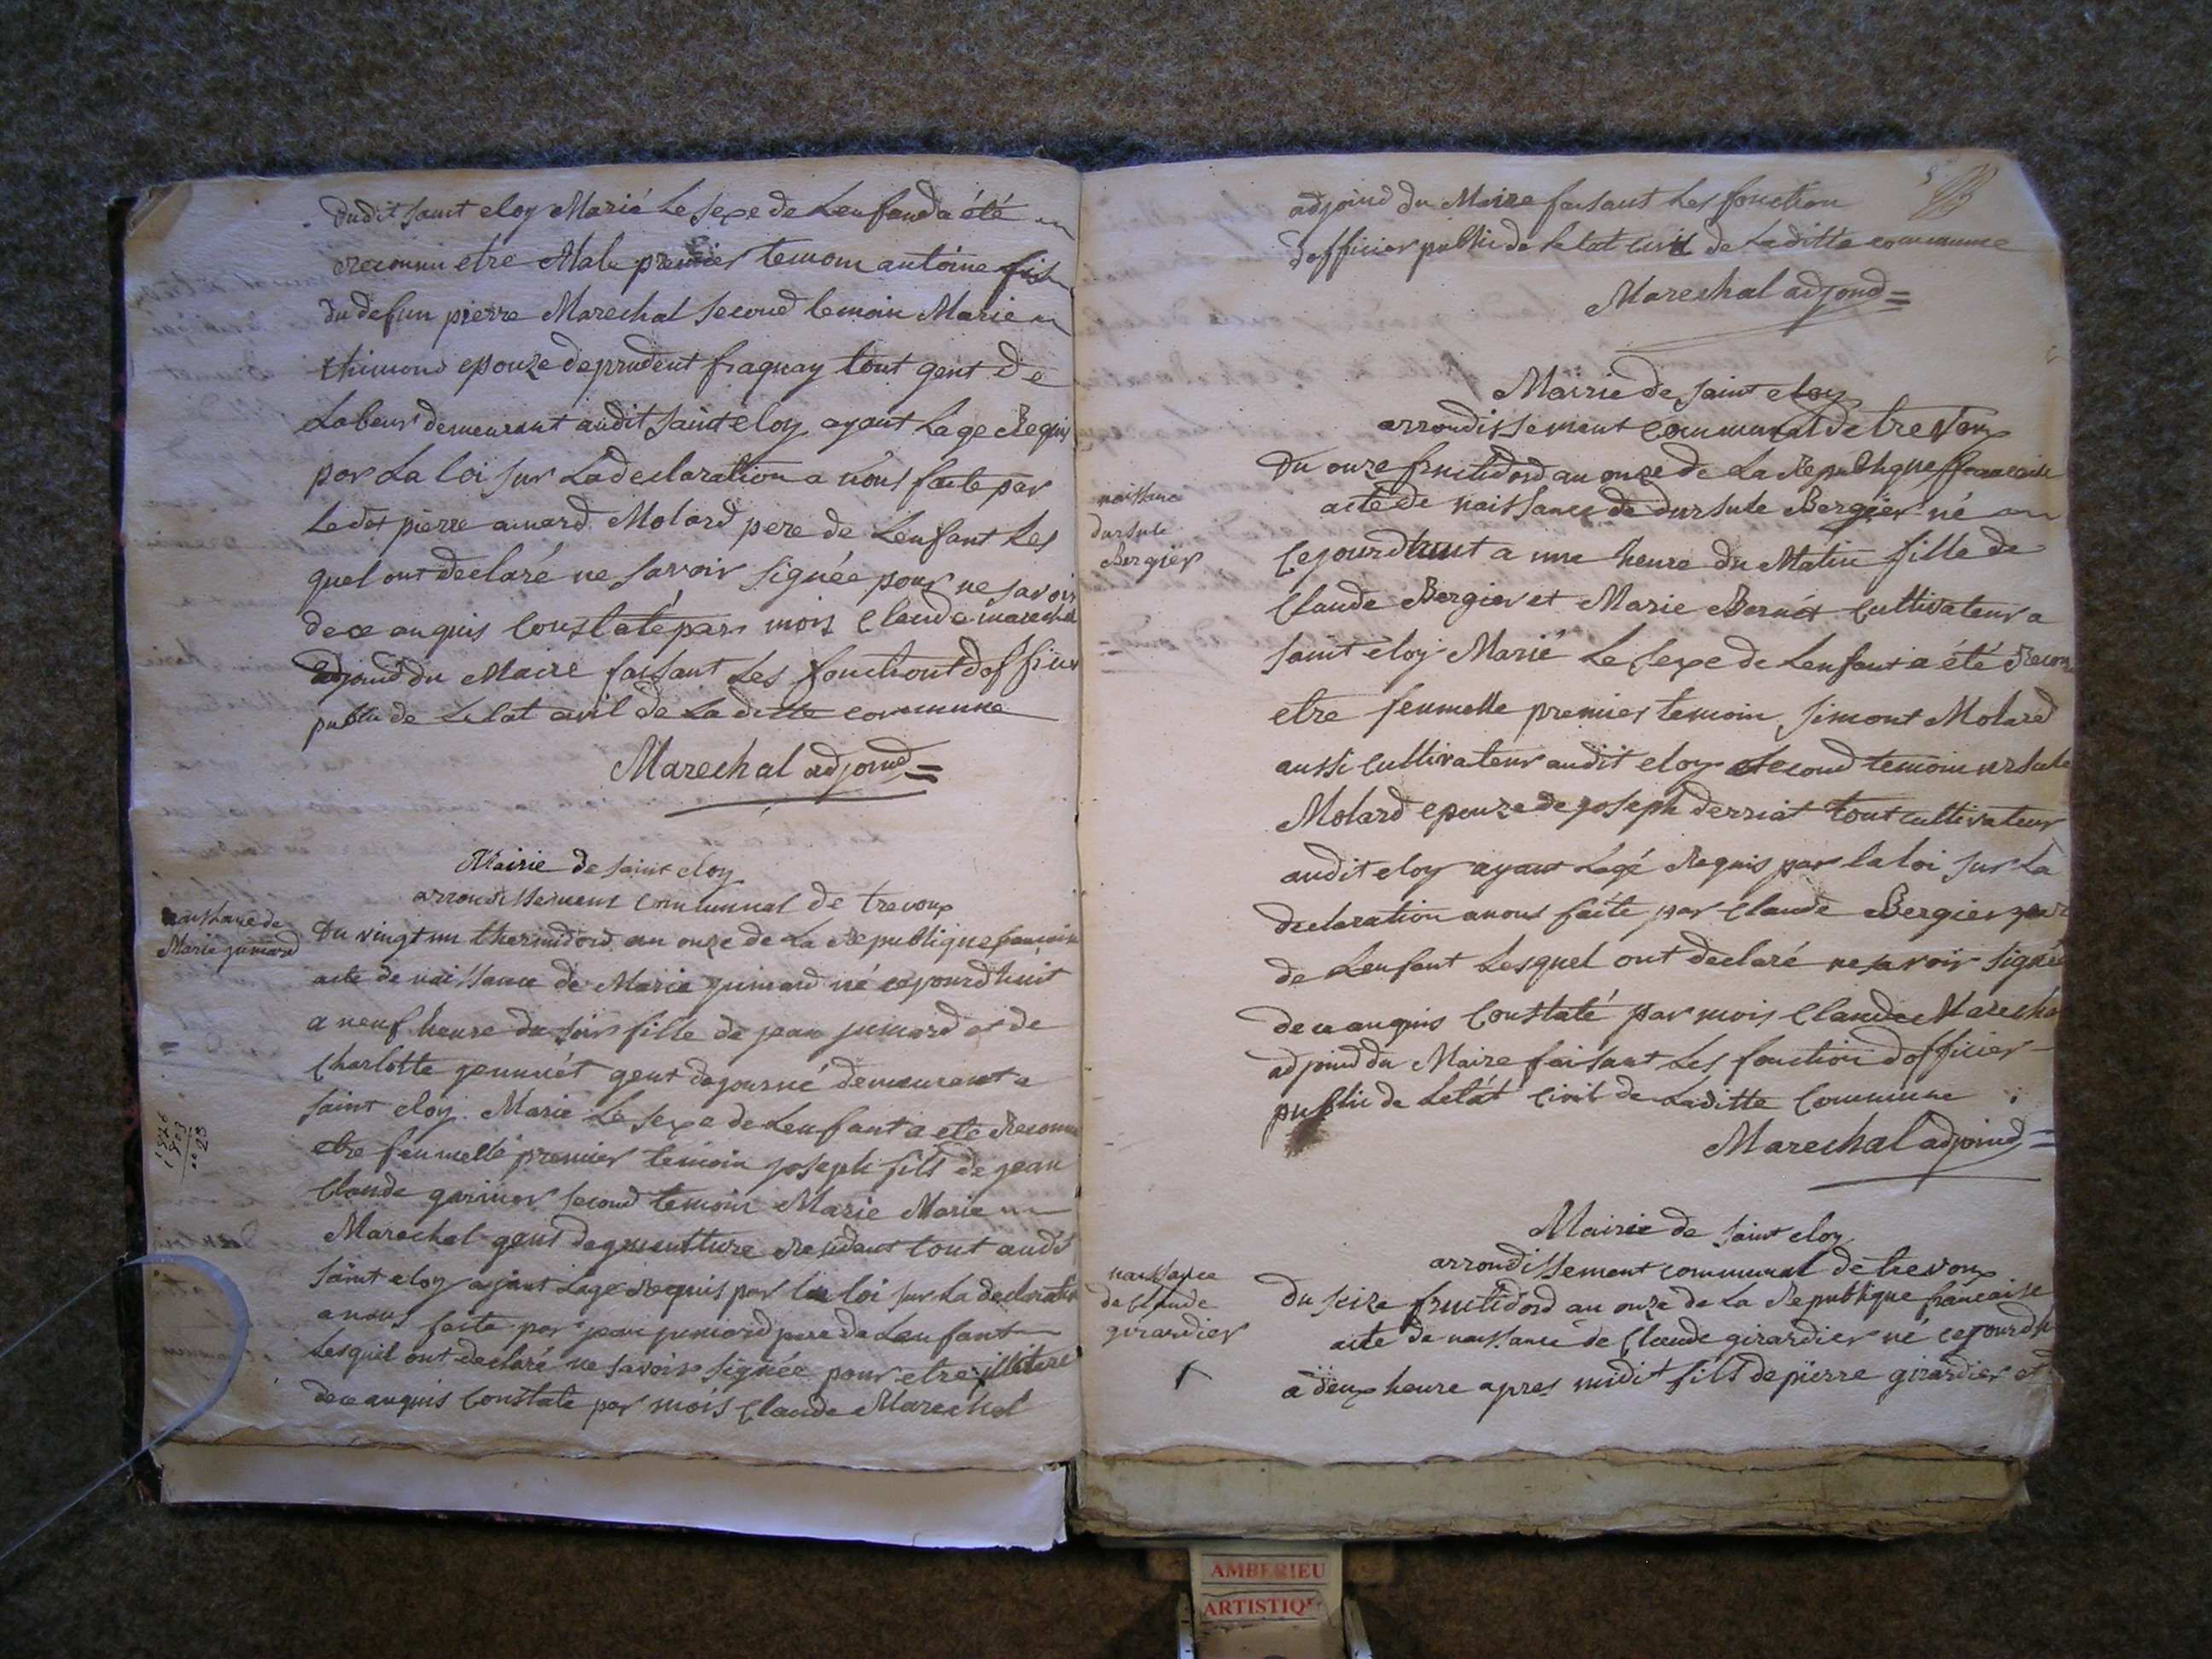 dudit saint eloy Marié Le sexe de Lenfanda été
reconnu etre Male premier temoin antoine fils
du defun pierre Marechal second temoin Marie
thimond epouze de prudent fraguay tout gent de
Labeur demeurant audit saint eloy ayant Lage Requis
par La loi sur La declaration a nous faite par
Le dit pierre amard Molard pere de Lenfant Les
quel ont declaré ne savoir signée pour ne savoir
de ce anquis Constaté par mois Claude marechal
adjoind du Maire faisant Les fonctiont dofficier
public de Letat civil de La ditte commune
Marechal adjoind
Mairie de saint eloy
arrondissement communal de trevoux
naissance de
Marie jumard
Du vingt un thermidord an onze de La Republique francaise
acte de naissance de Marie jumard né cejourdhuit
a neuf heure du soir fille de jean jumard et de
Charlotte jennuét gent de journé demeurent a
saint eloy Marié Le sexe de Lenfant a eté Reconnu
etre feumelle premier temoin joseph fils de jean
Claude second temoin Marie Marie
Marechal gent Residant tout audi
saint eloy ayant Lage Requis par la loi sur La declaration
a nous faite par jean jumard pere de Lenfant
Lesquel ont declaré ne savoir signée pour etre
de ce anquis Constate par mois Claude Marechal
adjoind du Maire faisant Les fonction
dofficier public de Letat civil de La ditte commune
Marechal adjoind
Mairie de saint eloy
arrondissement communal de trevoux
naissance
dursule
Bergier
Du onze fructidord an onze de La Republique francaise
acte de naissance de dursule Bergier né
Cejourdhuit a une heure du Matin fille de
Claude Bergier et Marie Bernét Cultivateur a
saint eloy Marié Le sexe de Lenfant a été Reconu
etre feumelle premier temoin simont Molard
aussi Cultivateur audit eloy second temoin ursule
Molard epouze de joseph derriat tout cultivateur
audit eloy ayant Lagé Requis par la loi sur La
declaration a nous faite par Claude Bergier pere
de Lenfant Lesquel ont declaré ne savoir signée
de ce anquis Constaté par mois Claude Marechal
adjoind du Maire faisant Les fonction dofficier
public de Letat civil de Laditte Commune
Marechal adjoind
Mairie de saint eloy
arrondissement communal de trevoux
naissance
de Claude
girardier
Du seize fructidord an onze de La Republique francaise
acte de naissance de Claude girardier né cejourdh
a deux heure apres midit fils de pierre girardier et
AMBERIEU
ARTISTIQ